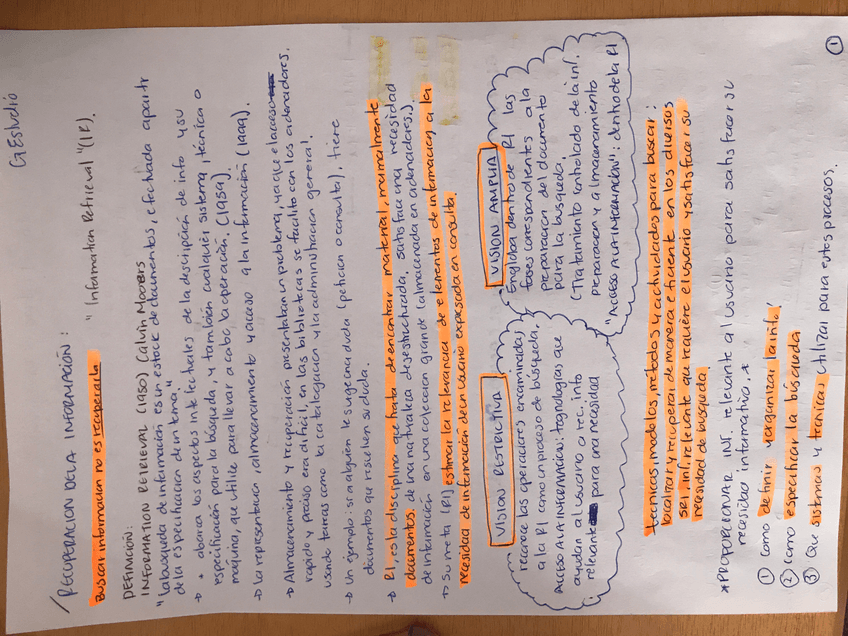 G Estudio
RECUPERACION DE LA INFORMACIÓN:
Buscar informacion no es recuperarla
"Information Retrieval" (IR).
DEFINICIÓN:
INFORMATION RETRIEVAL (1950) (Calvin Mooers
"La busqueda de información es un stock de documentos, efectuada apartir
de la especificacion de un tema."
→ + abarca los aspectos intelectuales de la descripción de info y su
especificación para la búsqueda, y también cualquier sistema, técnica o
maquina, que utilice para llevar a cabo la operación. (1959).
→ La representacion, almacenamiento y acceso a la información (1999).
→ Almacenamiento y recuperacion presentaban un problema, ya que el acceso
rapido y preciso era dificil, en las bibliotecas se facilito con los ordenadores.
usando tareas como la catalogacion y la administracion general.
→ Un ejemplo: si a alguien le surge una duda (peticion o consulta), tiene
documentos que resuelven su duda.
→ RI, es la disciplina que trata de encontrar material, normalmente
documentos, de una naturaleza desestructurada, satisface una necesidad
de información en una coleccion grande (almacenada en ordenadores.)
→ Su meta (RI) estimar la relevancia de elementos de informacion a la
necesidad de informacion de un usuario expresada en consulta.
VISION RESTRICTIVA
recoge las operaciones encaminadas
a la RI como un proceso de búsqueda.
ACCESO A LA INFORMACION: tegnologias que
ayudan al usuario a rec. info
relevante para una necesidad
VISION AMPLIA
Engloba dentro de RI las
fases correspondientes a la
preparacion del documento
para la busqueda.
(Tratamiento controlado de la inf.
preparacion y almacenamiento
"ACCESO A LA INFORMACIÓN": dentro de la RI
tecnicas, modelos, metodos y actividades para buscar:
localizar y recuperar de manera eficiente en los diversos
SRI, inf. relevante que requiere el usuario y satisfacer su
necesidad de búsqueda
*PROPORCIONAR INF. relevante al usuario para satisfacer su
necesidad informativa. *
① Como definir y organizar la info!
② Como especificar la búsqueda
③ Que sistemas y tecnicas utilizar para estos procesos.
①